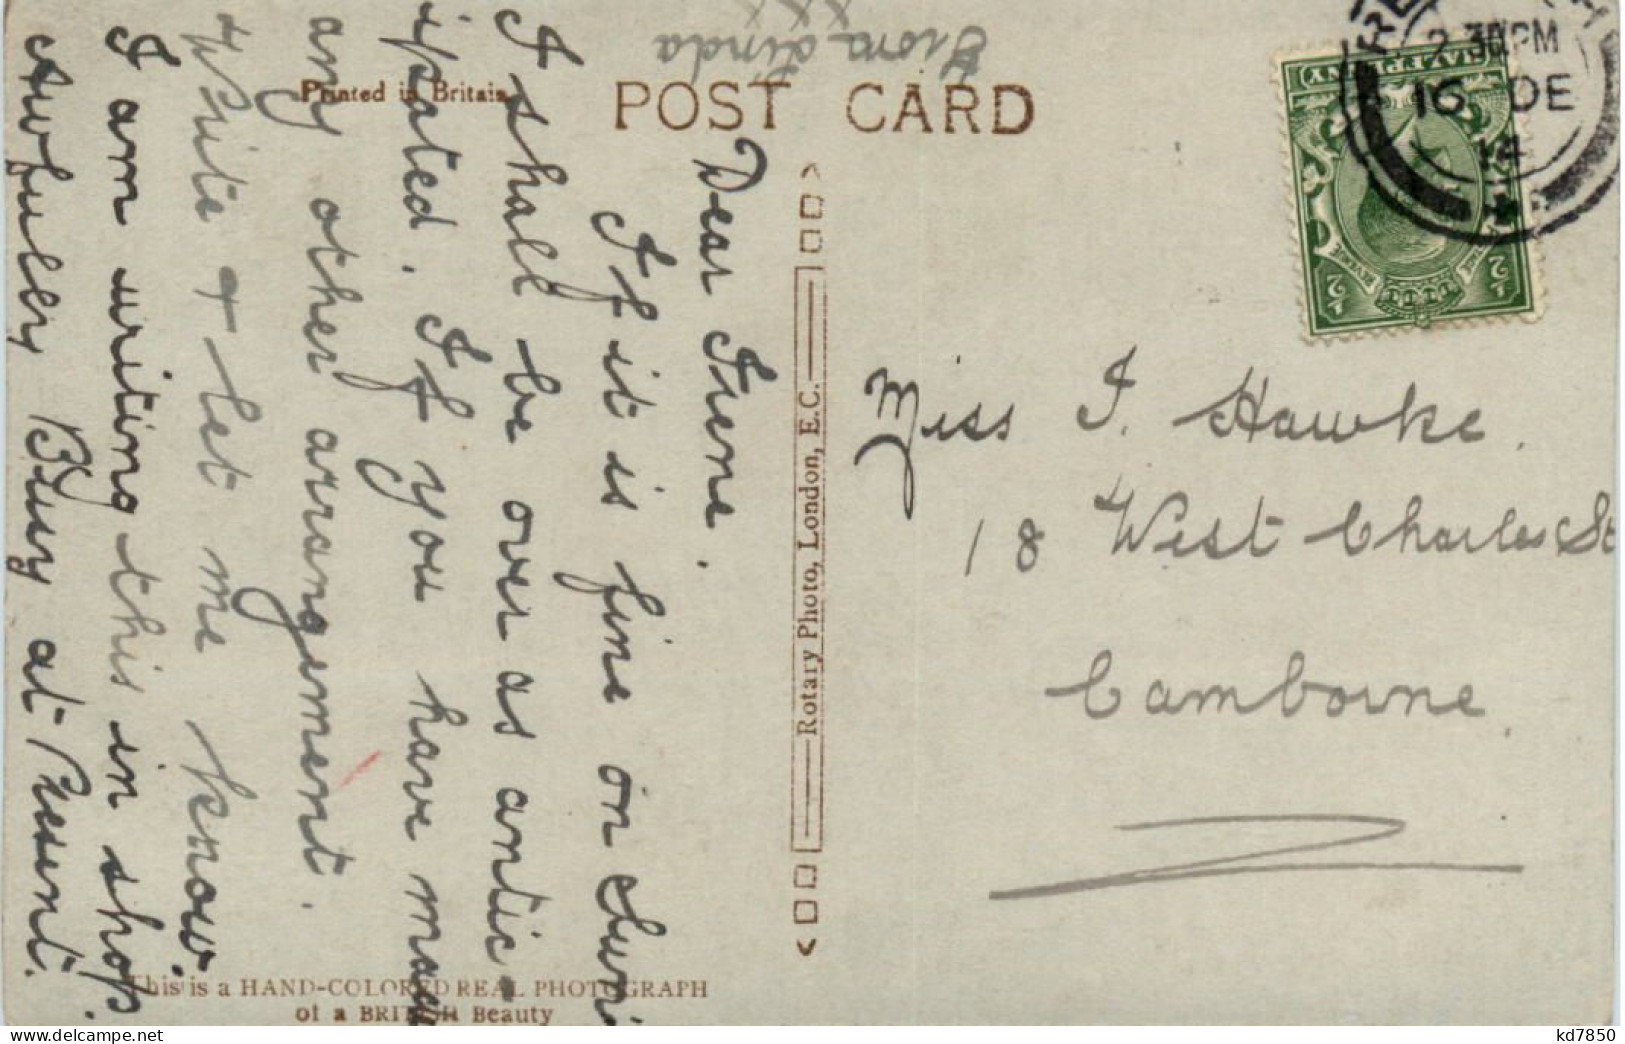 POST CARD
Printed in Britain
Dear Irene.
If it is fine on Sun
I shall be over as antic-
ipated. If you have may
any other arrangement.
write + let me know.
I am writing this in shop.
Awfully Busy at Present.
From Linda
xxx
Rotary Photo, London, E.C.
This is a HAND-COLORED REAL PHOTOGRAPH
of a BRITISH Beauty
2.30PM
16 DE
14
HALFPENNY
REVENUE
½
½
Miss I. Hawke.
18 West Charles St
Camborne
kd7850